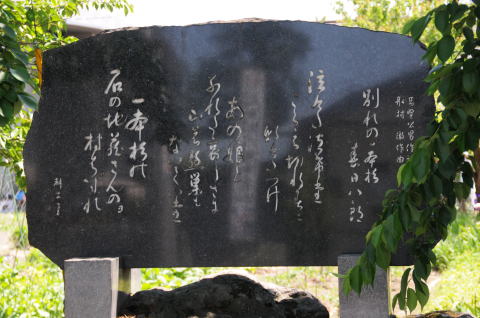 高野公男作詞
船村 徹作曲
別れの一本杉
春日八郎
泣けた泣けた
こらえ切れずに
泣けたっけ
あの娘と
別れた哀しさに
山の懸巣も
ないていた
一本杉の
石の地蔵さんのよ
村はずれ